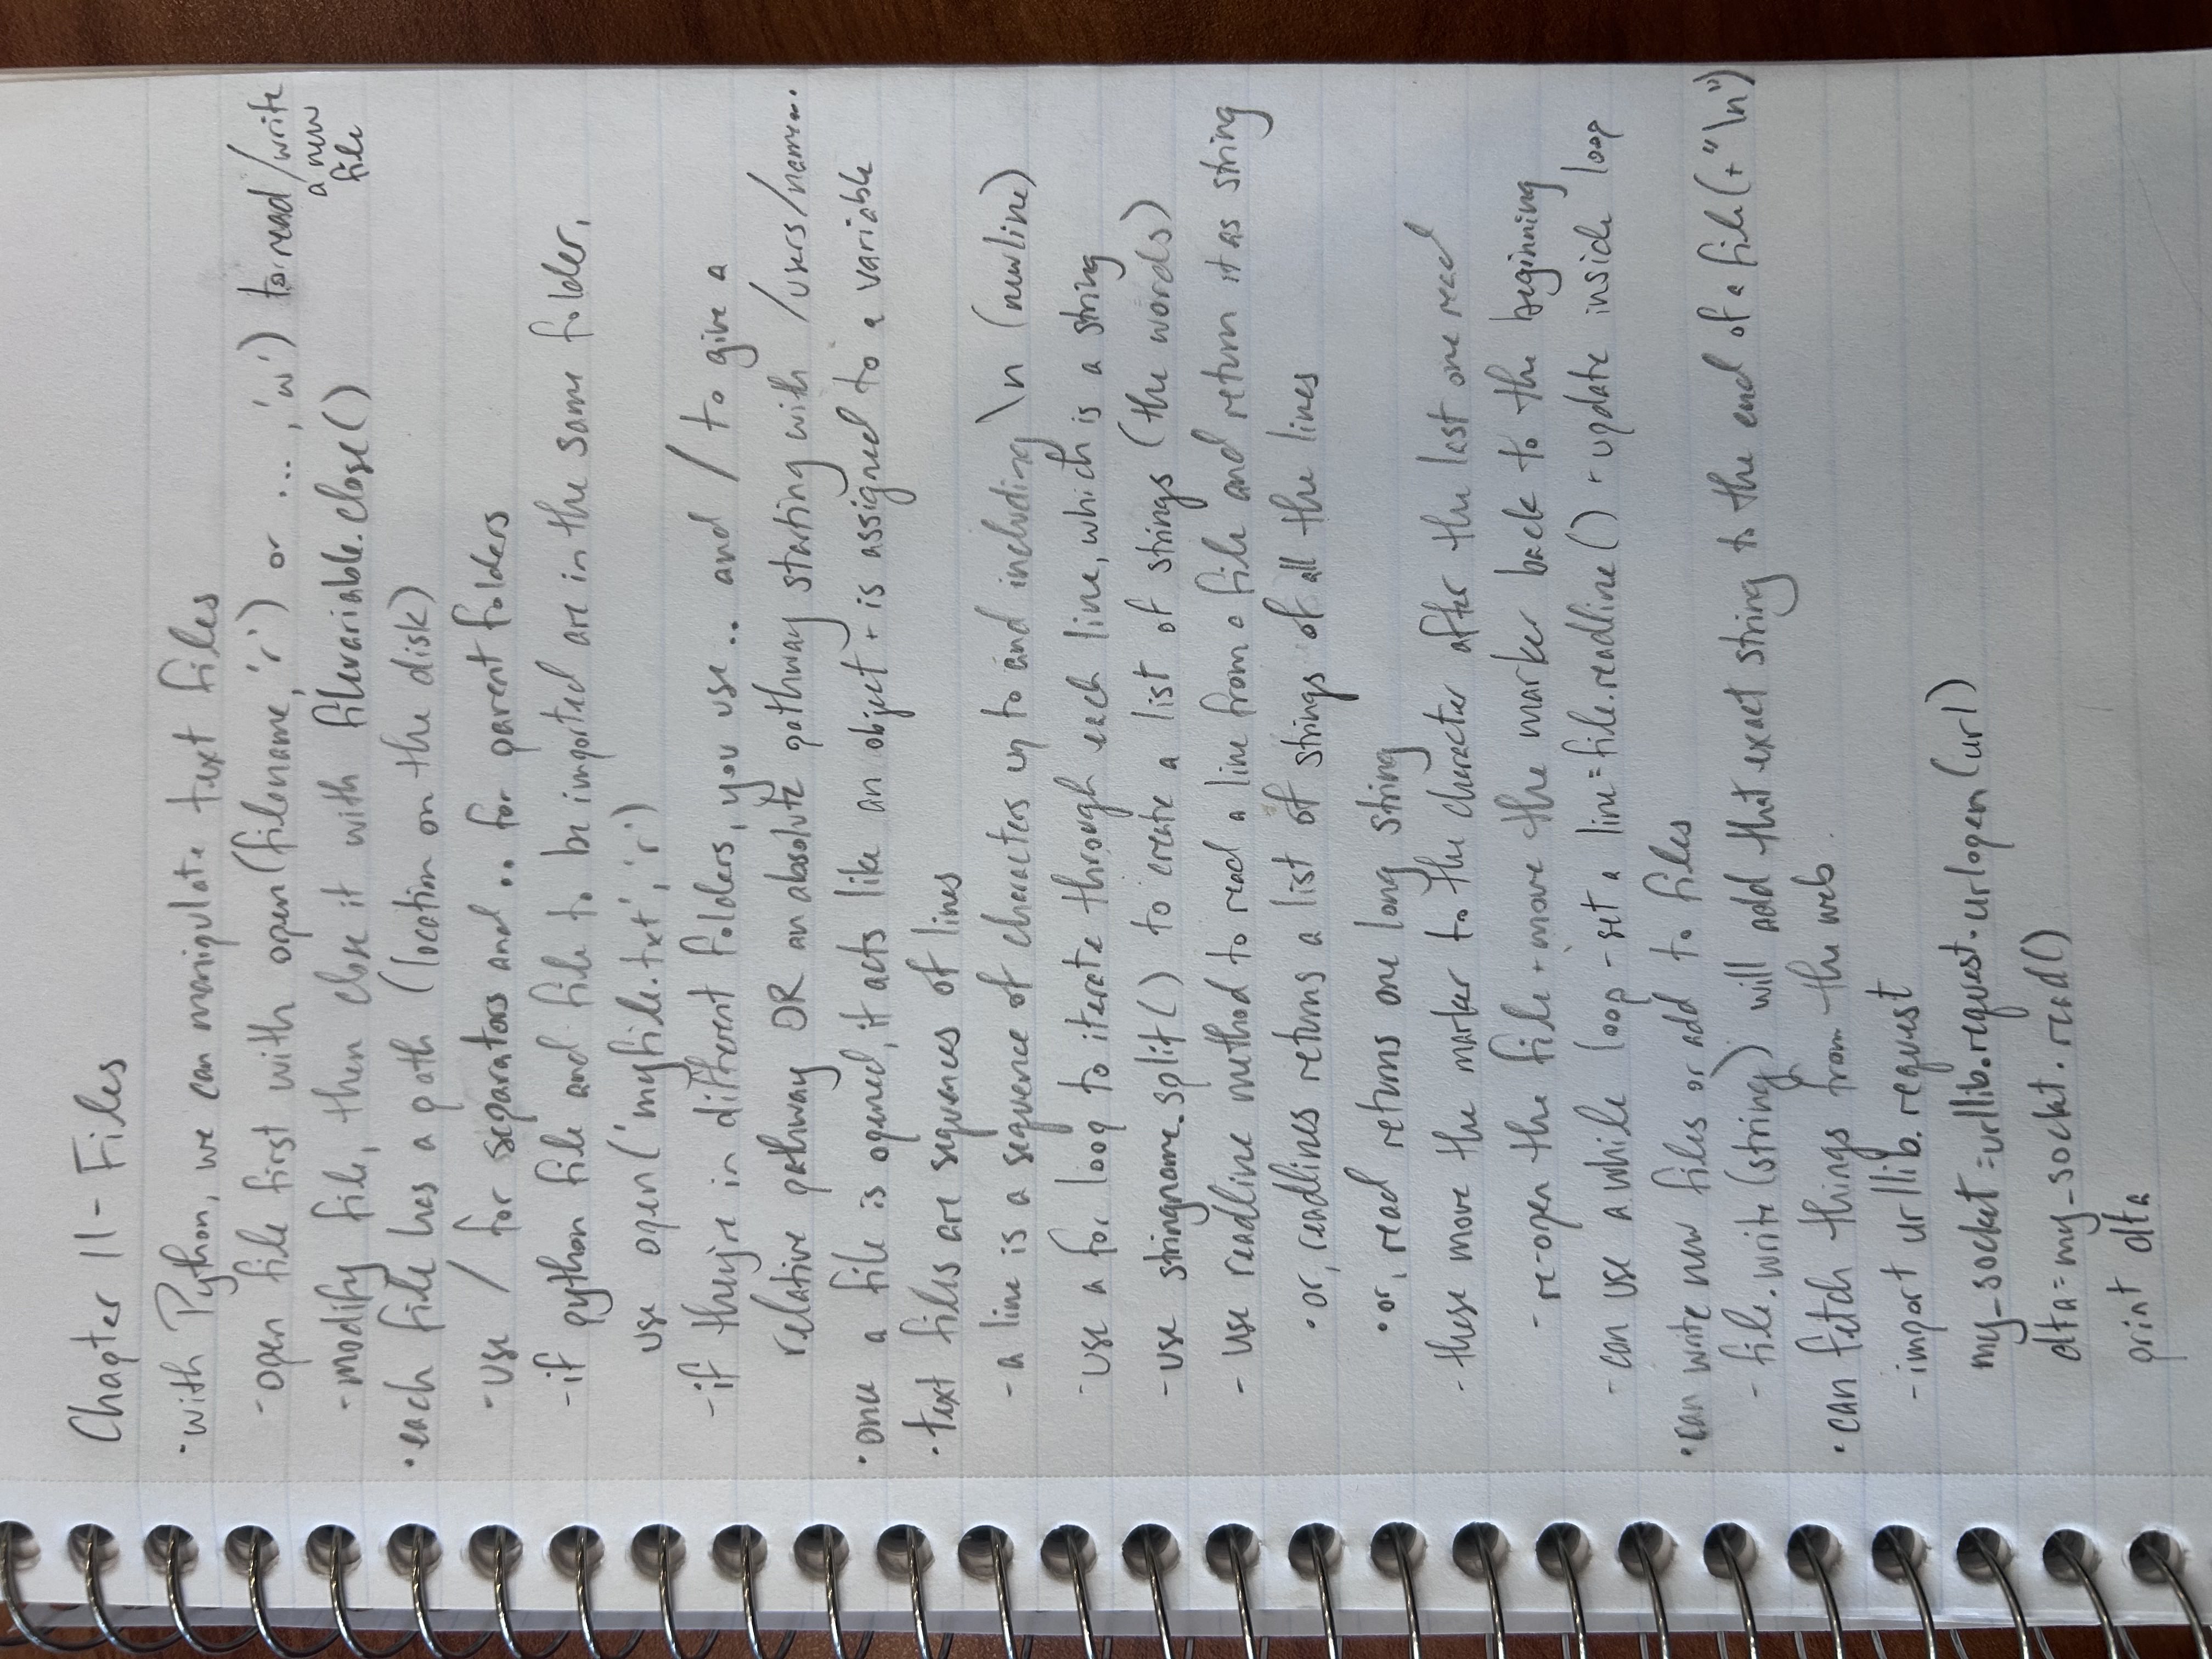 Chapter 11 - Files
· with Python, we can manipulate text files
- open file first with open(filename, 'r') or ... , 'w') to read / write
a new
file
- modify file, then close it with filevariable.close()
· each file has a path (location on the disk)
- use / for separators and .. for parent folders
- if python file and file to be imported are in the same folder,
use open('myfile.txt', 'r')
- if they're in different folders, you use .. and / to give a
relative pathway OR an absolute pathway starting with /users/name...
· once a file is opened, it acts like an object + is assigned to a variable
· text files are sequences of lines
- a line is a sequence of characters up to and including \n (newline)
- use a for loop to iterate through each line, which is a string
- use stringname.split() to create a list of strings (the words)
- use readline method to read a line from a file and return it as string
· or, readlines returns a list of strings of all the lines
· or, read returns one long string
- these move the marker to the character after the last one read
- re-open the file + move the marker back to the beginning
- can use a while loop - set a line=file.readline() + update inside loop
· can write new files or add to files
- file.write(string) will add that exact string to the end of a file (+ "\n")
· can fetch things from the web.
- import urllib.request
my_socket=urllib.request.urlopen(url)
dta=my_socket.read()
print dta